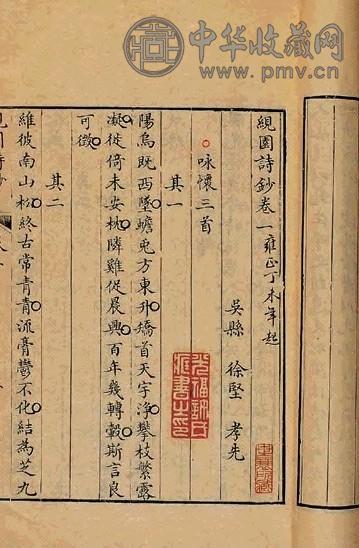 中华收藏网
www.pmv.cn
絸園詩鈔卷一雍正丁未年起
吳縣 徐堅 孝先
咏懷三首
其一
陽烏既西墜蟾兎方東升矯首天宇淨攀枝繁露
凝徙倚未安枕隣雞促晨興百年幾轉轂斯言良
可徵
其二
維彼南山松終古常青青流膏鬱不化結為芝九
光福許氏
藏書之印